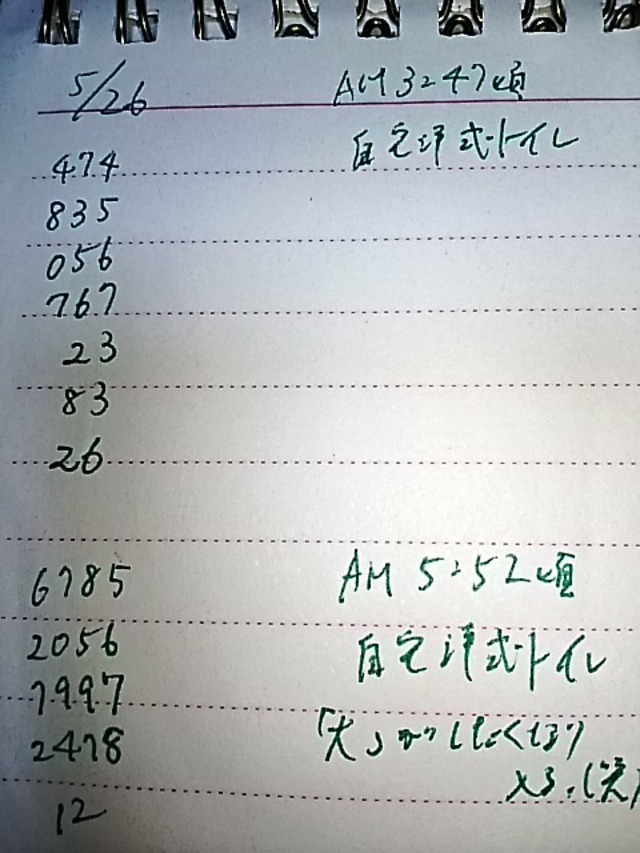 5/26 AM 3:47頃
自宅洋式トイレ
474
835
056
767
23
83
26
6785 AM 5:52頃
2056 自宅洋式トイレ
7997
2478 「大」がしたくなり
×3.(笑)
12